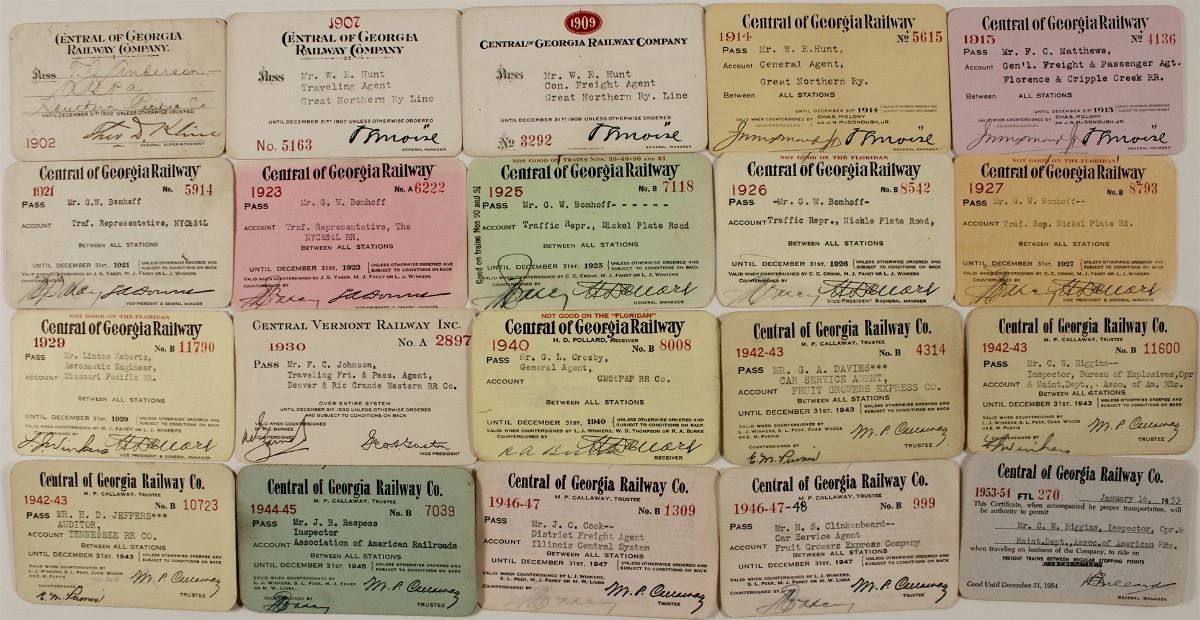 CENTRAL OF GEORGIA
RAILWAY COMPANY.
Pass
UNTIL DECEMBER 31ST 1902 UNLESS OTHERWISE ORDERED
1902
GENERAL SUPERINTENDENT
1907
CENTRAL OF GEORGIA
RAILWAY COMPANY
Pass
Mr. W. E. Hunt
Traveling Agent
Great Northern Ry Line
UNTIL DECEMBER 31ST 1907 UNLESS OTHERWISE ORDERED
No. 5163
GENERAL MANAGER
1909
CENTRAL OF GEORGIA RAILWAY COMPANY
Pass
Mr. W. E. Hunt
Con. Freight Agent
Great Northern Ry. Line
UNTIL DECEMBER 31ST 1909 UNLESS OTHERWISE ORDERED
No 3292
GENERAL MANAGER
Central of Georgia Railway
1914
No 5615
PASS Mr. W. E.Hunt,
ACCOUNT General Agent,
Great Northern Ry.
Between ALL STATIONS
UNTIL DECEMBER 31ST 1914
VALID WHEN COUNTERSIGNED BY CHAS. MOLONY
OR J.N. McDONOUGH, JR.
GENERAL MANAGER
Central of Georgia Railway
1915
No 4136
PASS Mr. F. C. Matthews,
ACCOUNT Gen'l. Freight & Passenger Agt.
Florence & Cripple Creek RR.
Between ALL STATIONS
UNTIL DECEMBER 31ST 1915
VALID WHEN COUNTERSIGNED BY CHAS. MOLONY
OR J.N. McDONOUGH, JR.
GENERAL MANAGER
Central of Georgia Railway
1921
No. 5914
PASS Mr. G.W. Bomhoff
ACCOUNT Traf. Representative, NYC&StL
BETWEEN ALL STATIONS
UNTIL DECEMBER 31ST, 1921 UNLESS OTHERWISE ORDERED AND
SUBJECT TO CONDITIONS ON BACK
VALID WHEN COUNTERSIGNED BY J. S. YAGER, M. J. FAHEY OR L. J. WINKERS
COUNTERSIGNED BY
VICE-PRESIDENT & GENERAL MANAGER
Central of Georgia Railway
1923
No. A 6222
PASS Mr. G. W. Bomhoff
ACCOUNT Traf. Representative, The
NYC&StL RR.
BETWEEN ALL STATIONS
UNTIL DECEMBER 31ST, 1923 UNLESS OTHERWISE ORDERED AND
SUBJECT TO CONDITIONS ON BACK
VALID WHEN COUNTERSIGNED BY J. S. YAGER, M. J. FAHEY OR L. J. WINKERS
COUNTERSIGNED BY
VICE PRESIDENT & GENERAL MANAGER
NOT GOOD ON TRAINS NOS. 39-40-90 AND 91
Central of Georgia Railway
1925
No. B 7118
Good on trains Nos 90 and 91
PASS Mr. G. W. Bomhoff- - - - - -
ACCOUNT Traffic Repr., Nickel Plate Road
BETWEEN ALL STATIONS
UNTIL DECEMBER 31ST, 1925 UNLESS OTHERWISE ORDERED AND
SUBJECT TO CONDITIONS ON BACK
VALID WHEN COUNTERSIGNED BY C. C. CRONK, M. J. FAHEY OR L. J. WINKERS
COUNTERSIGNED BY
GENERAL MANAGER
NOT GOOD ON THE FLORIDAN
Central of Georgia Railway
1926
No. B 8542
PASS -Mr. G. W. Bomhoff-
ACCOUNT Traffic Repr., Nickle Plate Road,
BETWEEN ALL STATIONS
UNTIL DECEMBER 31ST, 1926 UNLESS OTHERWISE ORDERED AND
SUBJECT TO CONDITIONS ON BACK
VALID WHEN COUNTERSIGNED BY C. C. CRONK, M. J. FAHEY OR L. J. WINKERS
COUNTERSIGNED BY
VICE PRESIDENT & GENERAL MANAGER
NOT GOOD ON THE FLORIDAN
Central of Georgia Railway
1927
No. B 8793
PASS Mr. G. W. Bomhoff--
ACCOUNT Traf. Rep. Nickel Plate Rd.
BETWEEN ALL STATIONS
UNTIL DECEMBER 31ST, 1927 UNLESS OTHERWISE ORDERED AND
SUBJECT TO CONDITIONS ON BACK
VALID WHEN COUNTERSIGNED BY C. C. CRONK, M. J. FAHEY OR L. J. WINKERS
COUNTERSIGNED BY
VICE PRESIDENT & GENERAL MANAGER
NOT GOOD ON THE FLORIDAN
Central of Georgia Railway
1929
No. B 11790
PASS Mr. Linton Roberts,
Aeronautic Engineer,
ACCOUNT Missouri Pacific RR.
BETWEEN ALL STATIONS
UNTIL DECEMBER 31ST, 1929 UNLESS OTHERWISE ORDERED AND
SUBJECT TO CONDITIONS ON BACK
VALID WHEN COUNTERSIGNED BY M. J. FAHEY OR L. J. WINKERS
COUNTERSIGNED BY
VICE PRESIDENT & GENERAL MANAGER
CENTRAL VERMONT RAILWAY INC.
1930
No. A 2897
PASS Mr. F. C. Johnson,
Traveling Frt. & Pass. Agent,
Denver & Rio Grande Western RR Co.
OVER ENTIRE SYSTEM
UNTIL DECEMBER 31ST 1930 UNLESS OTHERWISE ORDERED
AND SUBJECT TO CONDITIONS ON BACK
VICE PRESIDENT
NOT GOOD ON THE "FLORIDAN"
Central of Georgia Railway
H. D. POLLARD, RECEIVER
1940
No. B 8008
PASS Mr. G. L. Crosby,
General Agent,
ACCOUNT CMStP&P RR Co.
BETWEEN ALL STATIONS
UNTIL DECEMBER 31ST, 1940 UNLESS OTHERWISE ORDERED AND
SUBJECT TO CONDITIONS ON BACK
VALID WHEN COUNTERSIGNED BY L. J. WINKERS, W. D. THOMPSON OR R. A. BURCK
COUNTERSIGNED BY
RECEIVER
Central of Georgia Railway Co.
M. P. CALLAWAY, TRUSTEE
1942-43
No. B 4314
PASS MR. G. A. DAVIES***
CAR SERVICE AGENT,
ACCOUNT FRUIT GROWERS EXPRESS CO.
BETWEEN ALL STATIONS
UNTIL DECEMBER 31ST, 1943 UNLESS OTHERWISE ORDERED AND
SUBJECT TO CONDITIONS ON BACK
VALID WHEN COUNTERSIGNED BY
L. J. WINKERS, S. L. PEEK, CHAS. WOODS
OR E. M. PURVIS
COUNTERSIGNED BY
E. M. Purvis
M. P. Callaway
TRUSTEE
Central of Georgia Railway Co.
M. P. CALLAWAY, TRUSTEE
1942-43
No. B 11600
PASS Mr. C. W. Higgins--
Inspector, Bureau of Explosives,Opr
ACCOUNT & Maint.Dept,, Asso. of Am. RRs.
BETWEEN ALL STATIONS
UNTIL DECEMBER 31ST, 1943 UNLESS OTHERWISE ORDERED AND
SUBJECT TO CONDITIONS ON BACK
VALID WHEN COUNTERSIGNED BY
L. J. WINKERS, S. L. PEEK, CHAS. WOODS
OR E. M. PURVIS
COUNTERSIGNED BY
M. P. Callaway
TRUSTEE
Central of Georgia Railway Co.
M. P. CALLAWAY, TRUSTEE
1942-43
No. B 10723
PASS MR. H. D. JEFFERS***
AUDITOR,
ACCOUNT TENNESSEE RR CO.
BETWEEN ALL STATIONS
UNTIL DECEMBER 31ST, 1943 UNLESS OTHERWISE ORDERED AND
SUBJECT TO CONDITIONS ON BACK
VALID WHEN COUNTERSIGNED BY
L. J. WINKERS, S. L. PEEK, CHAS WOODS
OR E. M. PURVIS
COUNTERSIGNED BY
E. M. Purvis
M. P. Callaway
TRUSTEE
Central of Georgia Railway Co.
M. P. CALLAWAY, TRUSTEE
1944-45
No. B 7039
PASS Mr. J. B. Respess
Inspector
ACCOUNT Association of American Railroads
BETWEEN ALL STATIONS
UNTIL DECEMBER 31ST, 1945 UNLESS OTHERWISE ORDERED AND
SUBJECT TO CONDITIONS ON BACK
VALID WHEN COUNTERSIGNED BY
L. J. WINKERS, S. L. PEEK, M. J. FAHEY
OR M. W. LUBA
COUNTERSIGNED BY
M. P. Callaway
TRUSTEE
Central of Georgia Railway Co.
M. P. CALLAWAY, TRUSTEE
1946-47
No. B 1309
PASS Mr. J. C. Cook--
District Freight Agent
ACCOUNT Illinois Central System
BETWEEN ALL STATIONS
UNTIL DECEMBER 31ST, 1947 UNLESS OTHERWISE ORDERED AND
SUBJECT TO CONDITIONS ON BACK
VALID WHEN COUNTERSIGNED BY L. J. WINKERS,
S. L. PEEK, M. J. FAHEY OR M. W. LUBA
COUNTERSIGNED BY
M. P. Callaway
TRUSTEE
Central of Georgia Railway Co.
M. P. CALLAWAY, TRUSTEE
1946-47-48
No. B 999
PASS Mr. H. S. Clinkenbeard--
Car Service Agent
ACCOUNT Fruit Growers Express Company
BETWEEN ALL STATIONS
UNTIL DECEMBER 31ST, 1947 UNLESS OTHERWISE ORDERED AND
SUBJECT TO CONDITIONS ON BACK
VALID WHEN COUNTERSIGNED BY L. J. WINKERS,
S. L. PEEK, M. J. FAHEY OR M. W. LUBA
COUNTERSIGNED BY
M. P. Callaway
TRUSTEE
Central of Georgia Railway Co.
1953-54 FTL 270
January 16, 1953
This Certificate, when accompanied by proper transportation, will
be authority to permit
Mr. C. W. Higgins, Inspector, Opr.&
Maint.Dept.,Assoc.of American RRs.
when traveling on business of the Company, to ride on
FREIGHT TRAINS BETWEEN REGULAR STOPPING POINTS
Good Until December 31, 1954
GENERAL MANAGER